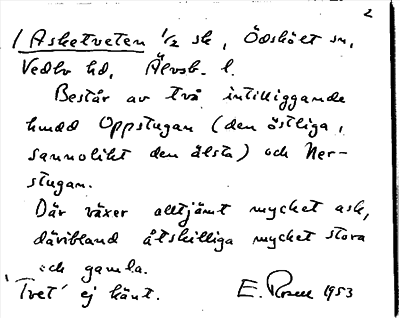 2
/ Asketveten 1/2 sk, Ödskölt sn,
Vedbo hd, Älvsb. l.
Består av två intilliggande
hmdd Oppstugan (den östliga,
sannolikt den älsta) och Ner-
stugan.
Där växer alltjämt mycket ask,
däribland åtskilliga mycket stora
och gamla.
'Tvet' ej känt. E. Rosell 1953